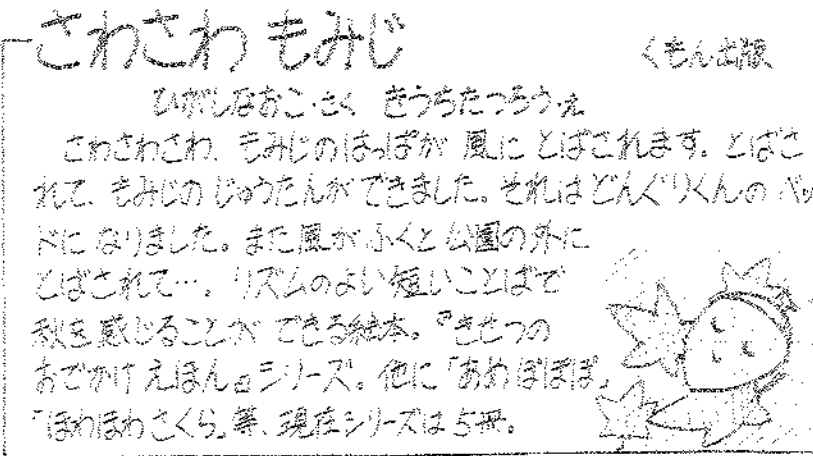 さわさわ もみじ
くもん出版
ひがしなおこ・さく きうちたつろう・え
さわさわさわ、もみじのはっぱが 風に とばされます。とばさ
れて、もみじの じゅうたんが できました。それは どんぐりくんの ベッ
ドに なりました。また風が ふくと 公園の外に
とばされて…。リズムのよい短いことばで
秋を感じることが できる絵本。『きせつの
おでかけえほん』シリーズ。他に「あめぽぽぽ」
「ほわほわさくら」等、現在シリーズは5冊。